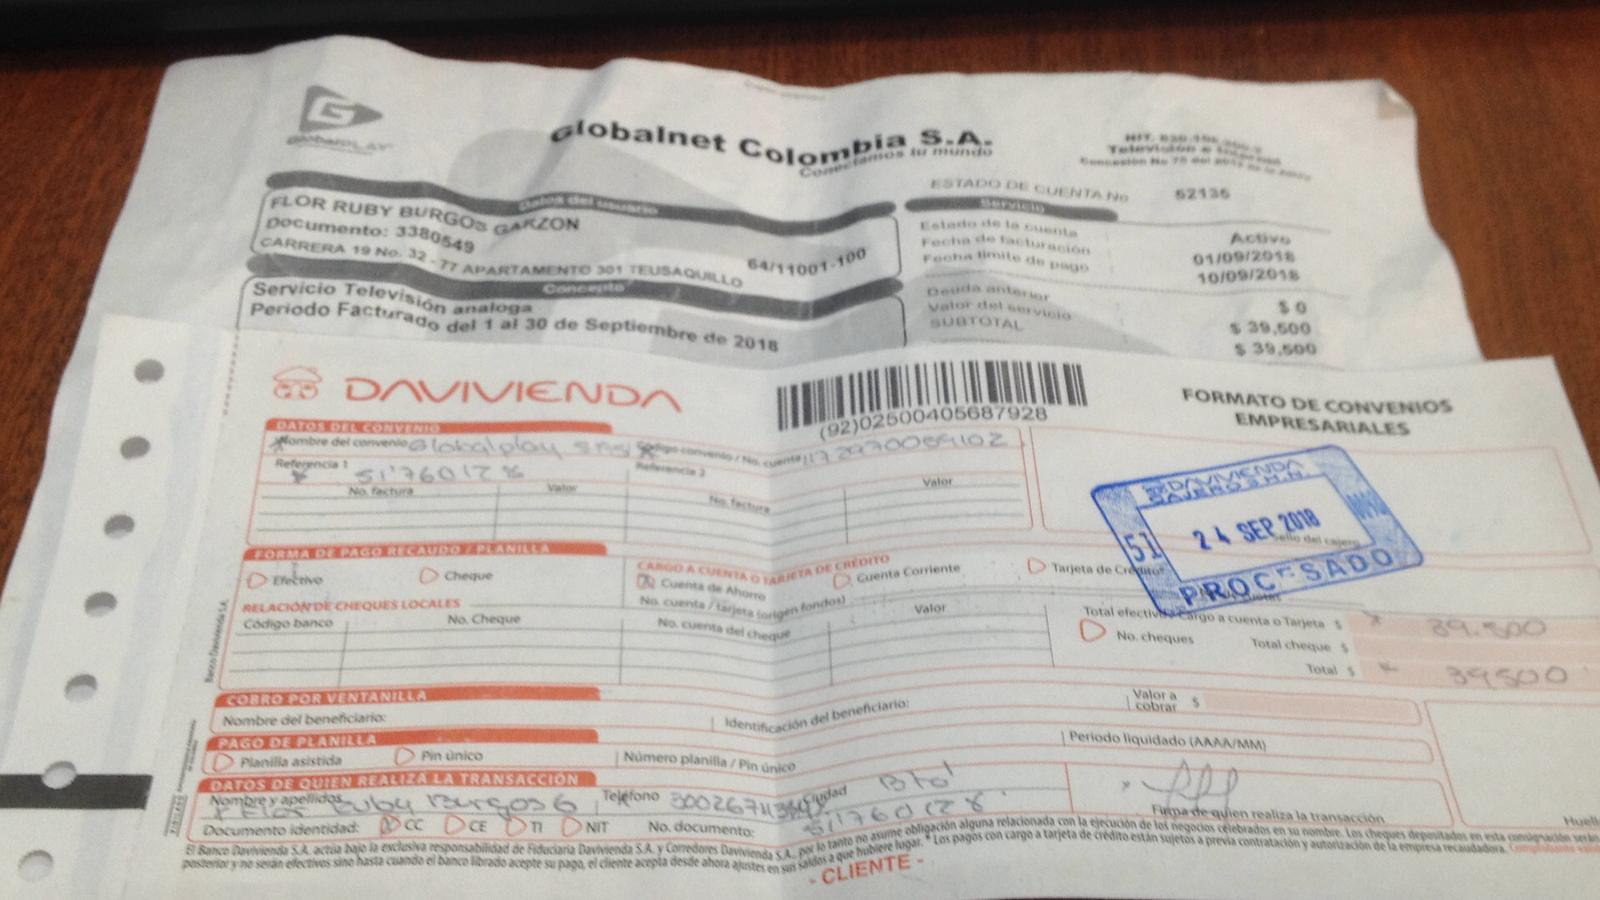 GlobalPLAY
Globalnet Colombia S.A.
Conectamos tu mundo
Televisión e
Concesión No
ESTADO DE CUENTA No 52135
Datos del usuario
FLOR RUBY BURGOS GARZON
Documento: 3380549
CARRERA 19 No. 32 - 77 APARTAMENTO 301 TEUSAQUILLO
64/11001-100
Servicio
Estado de la cuenta Activo
Fecha de facturación 01/09/2018
Fecha limite de pago 10/09/2018
Concepto
Servicio Televisión analoga
Periodo Facturado del 1 al 30 de Septiembre de 2018
Deuda anterior $ 0
Valor del servicio $ 39,500
SUBTOTAL $ 39,500
DAVIVIENDA
(92)02500405687928
FORMATO DE CONVENIOS
EMPRESARIALES
DATOS DEL CONVENIO
Nombre del convenio Globalplay Código convenio / No. cuenta
Referencia 1 51760128 Referencia 2
No. factura Valor No. factura Valor
DAVIVIENDA
51 24 SEP 2018
Sello del cajero
PROCESADO
FORMA DE PAGO RECAUDO / PLANILLA
Efectivo Cheque
CARGO A CUENTA O TARJETA DE CRÉDITO
Cuenta de Ahorro Cuenta Corriente Tarjeta de Crédito
No. cuenta / tarjeta (origen fondos)
RELACIÓN DE CHEQUES LOCALES
Código banco No. Cheque No. cuenta del cheque Valor
Total efectivo Cargo a cuenta o Tarjeta $ 39.500
No. cheques Total cheque $
Total $ 39500
COBRO POR VENTANILLA
Nombre del beneficiario: Identificación del beneficiario: Valor a cobrar $
PAGO DE PLANILLA
Planilla asistida Pin único Número planilla / Pin único Periodo liquidado (AAAA/MM)
DATOS DE QUIEN REALIZA LA TRANSACCIÓN
Nombre y apellidos Ruby Burgos G Teléfono Ciudad Bta
Documento identidad: CC CE TI NIT No. documento: 51760128
Firma de quien realiza la transacción
Huella
Banco Davivienda S.A.
El Banco Davivienda S.A. actúa bajo la exclusiva responsabilidad de Fiduciaria Davivienda S.A. y Corredores Davivienda S.A., por lo tanto no asume obligación alguna relacionada con la ejecución de los negocios celebrados en su nombre. Los cheques depositados en esta consignación serán
posterior y no serán efectivos sino hasta cuando el banco librado acepte su pago, el cliente acepta desde ahora ajustes en sus saldos a que hubiere lugar. * Los pagos con cargo a tarjeta de crédito están sujetos a previa contratación y autorización de la empresa recaudadora.
- CLIENTE -